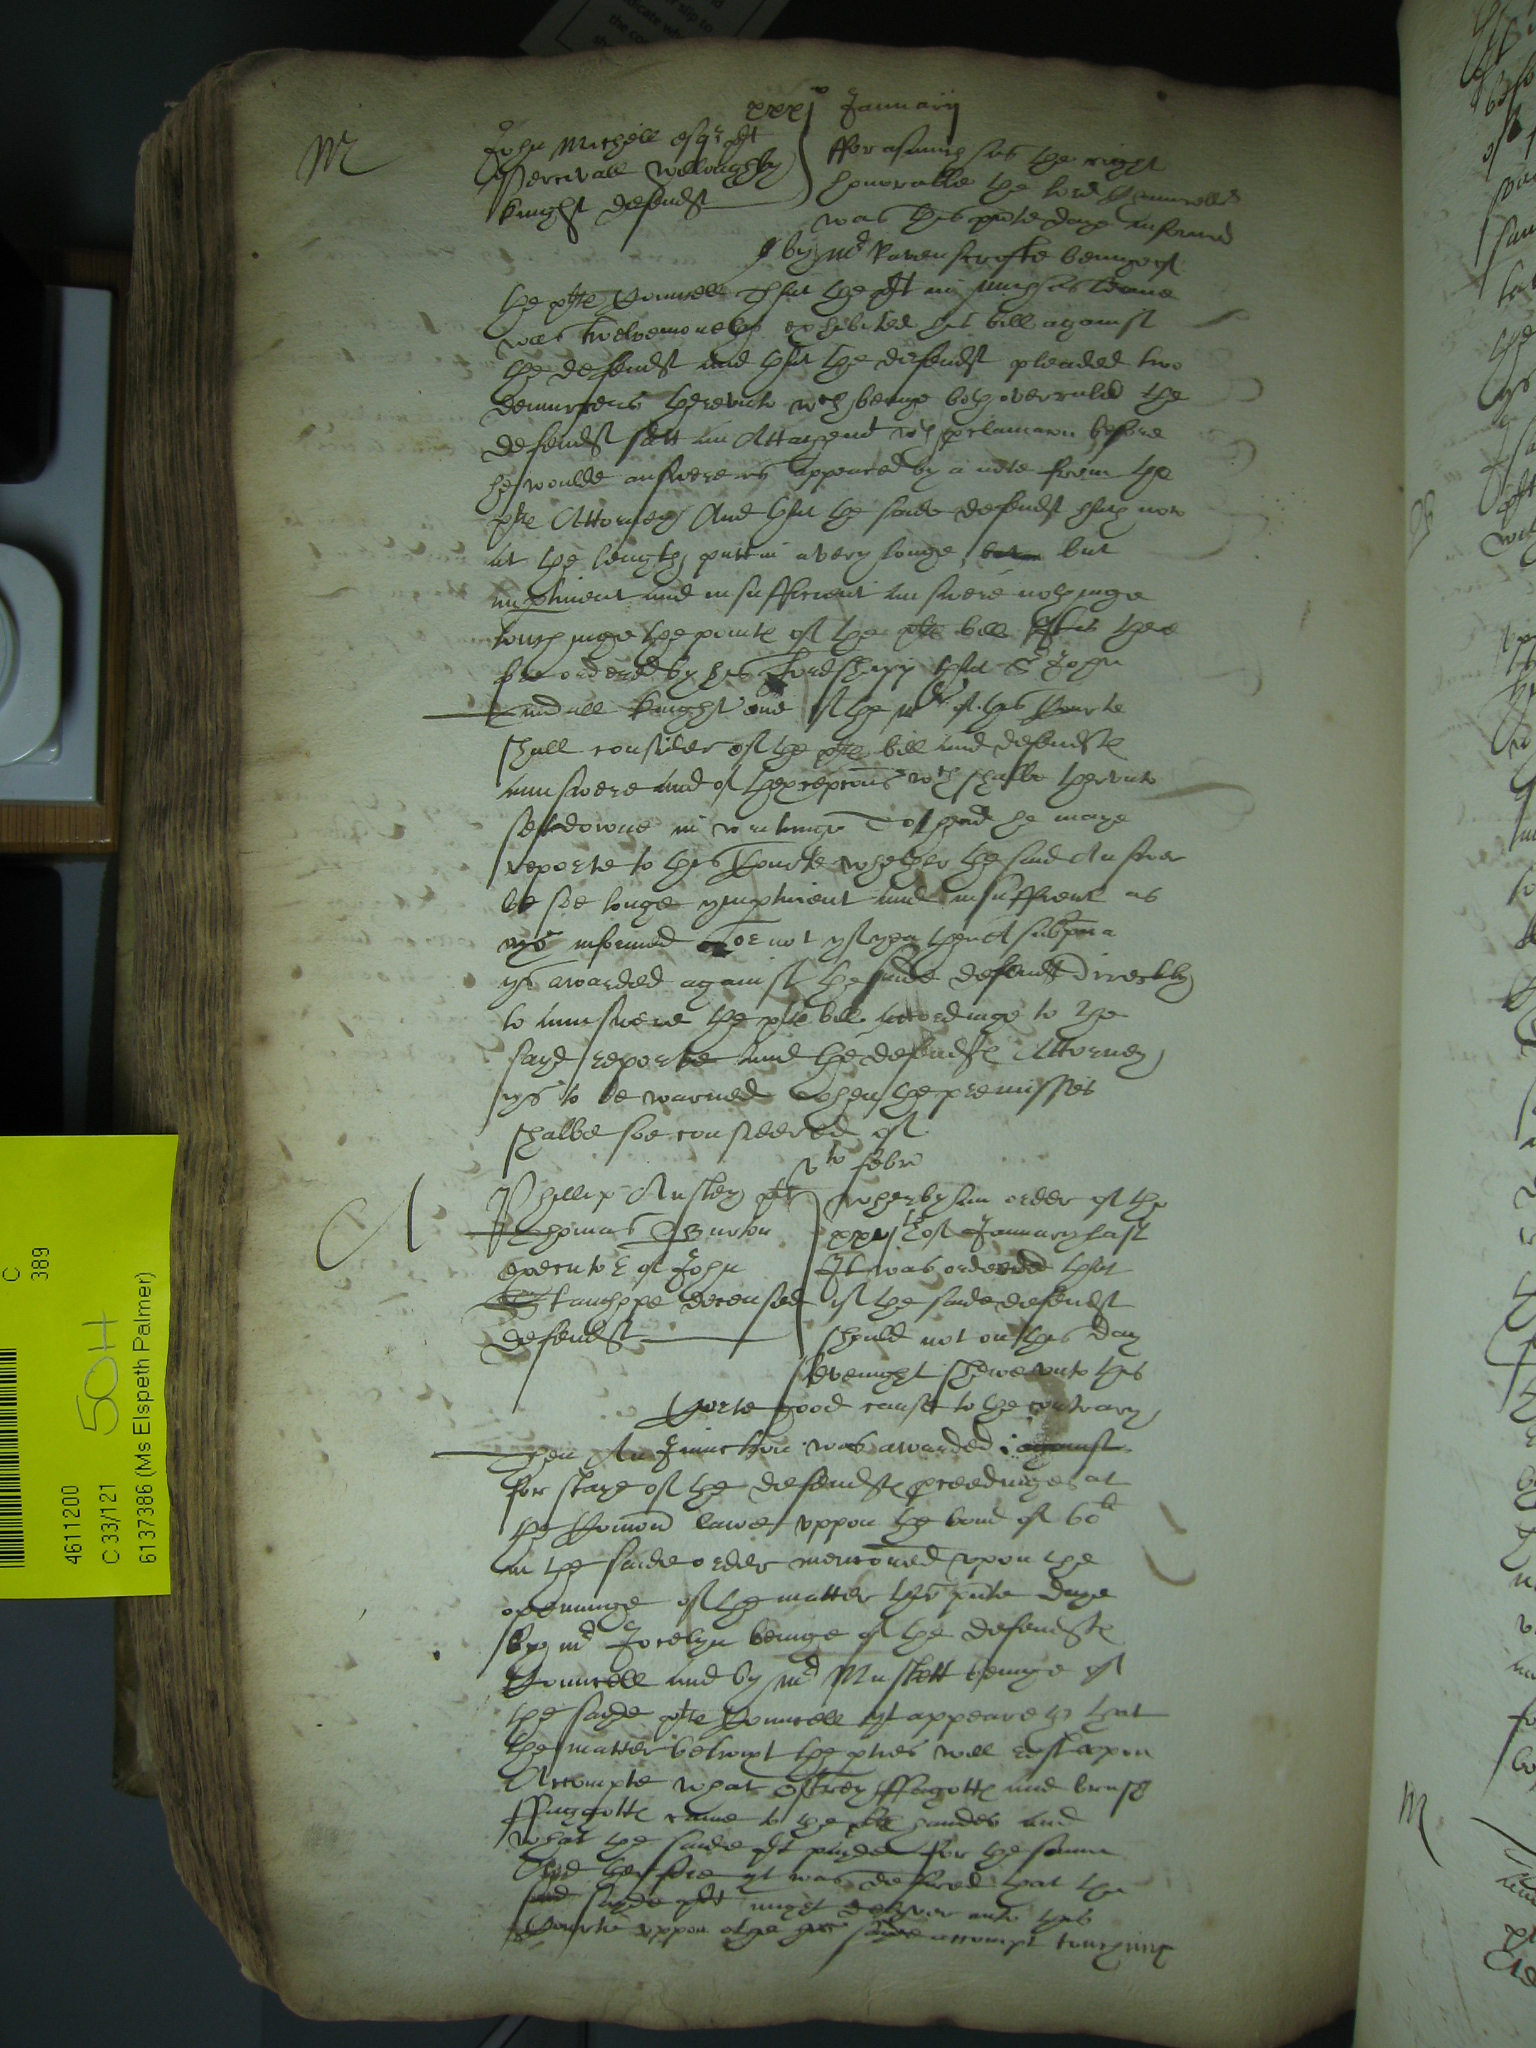 xxxj° Januarij
M
John Michell esqr plt
Percivall Willoughby
knight defendt
fforasmuch as the right
honorable the lord Chauncell
was this pnte daye informed
by mr Ravenscrofte beinge of
the plts Councell That the plt in
was twelvemoneth exhibited his bill against
the defendt and that the defendt pleaded two
demurrers therevnto wch beinge both overruled the
defendt satt an Attachemt wth proclamacon before
he woulde answere as appeared by a note from the
plts Attorney And that the saide defendt hath now
at the length putt in a very longe but
imptinent and insufficient answere nothinge
towchinge the pointe of the plts bill It is ther
fore ordered by his Lordshipp that Sr John
Tindall knight one of the mrs of this Courte
shall consider of the plts bill and defendts
aunswere and of thexcepcons wch shalbe thervnto
sett downe in writinge To thend he maye
reporte to this Courte whether the said Answer
be soe longe ympertinent and insufficient as
ys informed or not yf yea then A subpena
ys awarded against the saide defendt directly
to aunswere the plts bill accordinge to the
sayd reporte and the defendts Attorney
ys to be warned when the premisses
shalbe soe considered of
vto febr
A
Phillip Anstey plt
Thomas Burton
executor of John
Stanhope deceased
defendt
Wher by an order of the
of January last
It was ordered that
if the saide defendt
should not on this day
sevenight shewe vnto this
Corte good cause to the contrary
Then An Iniunction was awarded against
for staye of the defendts proceedinges at
the Comon lawe vppon the bond of 60li
in the saide order mencioned vpon the
openinge of the matter this pnte daye
By mr Jocelyn beinge of the defendts
Councell and by mr Muskett beinge of
the sayde plts Councell yt appeareth that
the matter betwixt the pties will rest vpon
Accompte what ffagotts and brush
ffaggotts came to the plts handes and
what the saide plt payde for the same
And therfore yt was desired that the
sayde plt might deliver into this
Courte vppon othe accompt touching
4611200
C 33/121
6137386 (Ms Elspeth Palmer)
50H
C
389